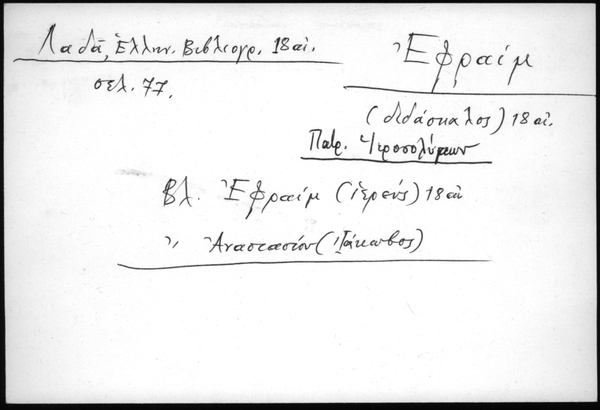 Λαδᾶ, Ἑλλην. Βιβλιογρ. 18 αἰ.
σελ. 77.
Ἐφραίμ
(διδάσκαλος) 18 αἰ.
Πατρ. Ἱεροσολύμων
Βλ. Ἐφραίμ (ἱερεύς) 18 αἰ
〃 Ἀναστασίου (Ἰάκωβος)